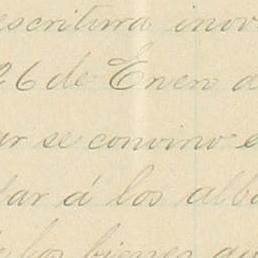 escritura inov
26 de Enero d
ar se convino e
tar á los alba
los bienes qu